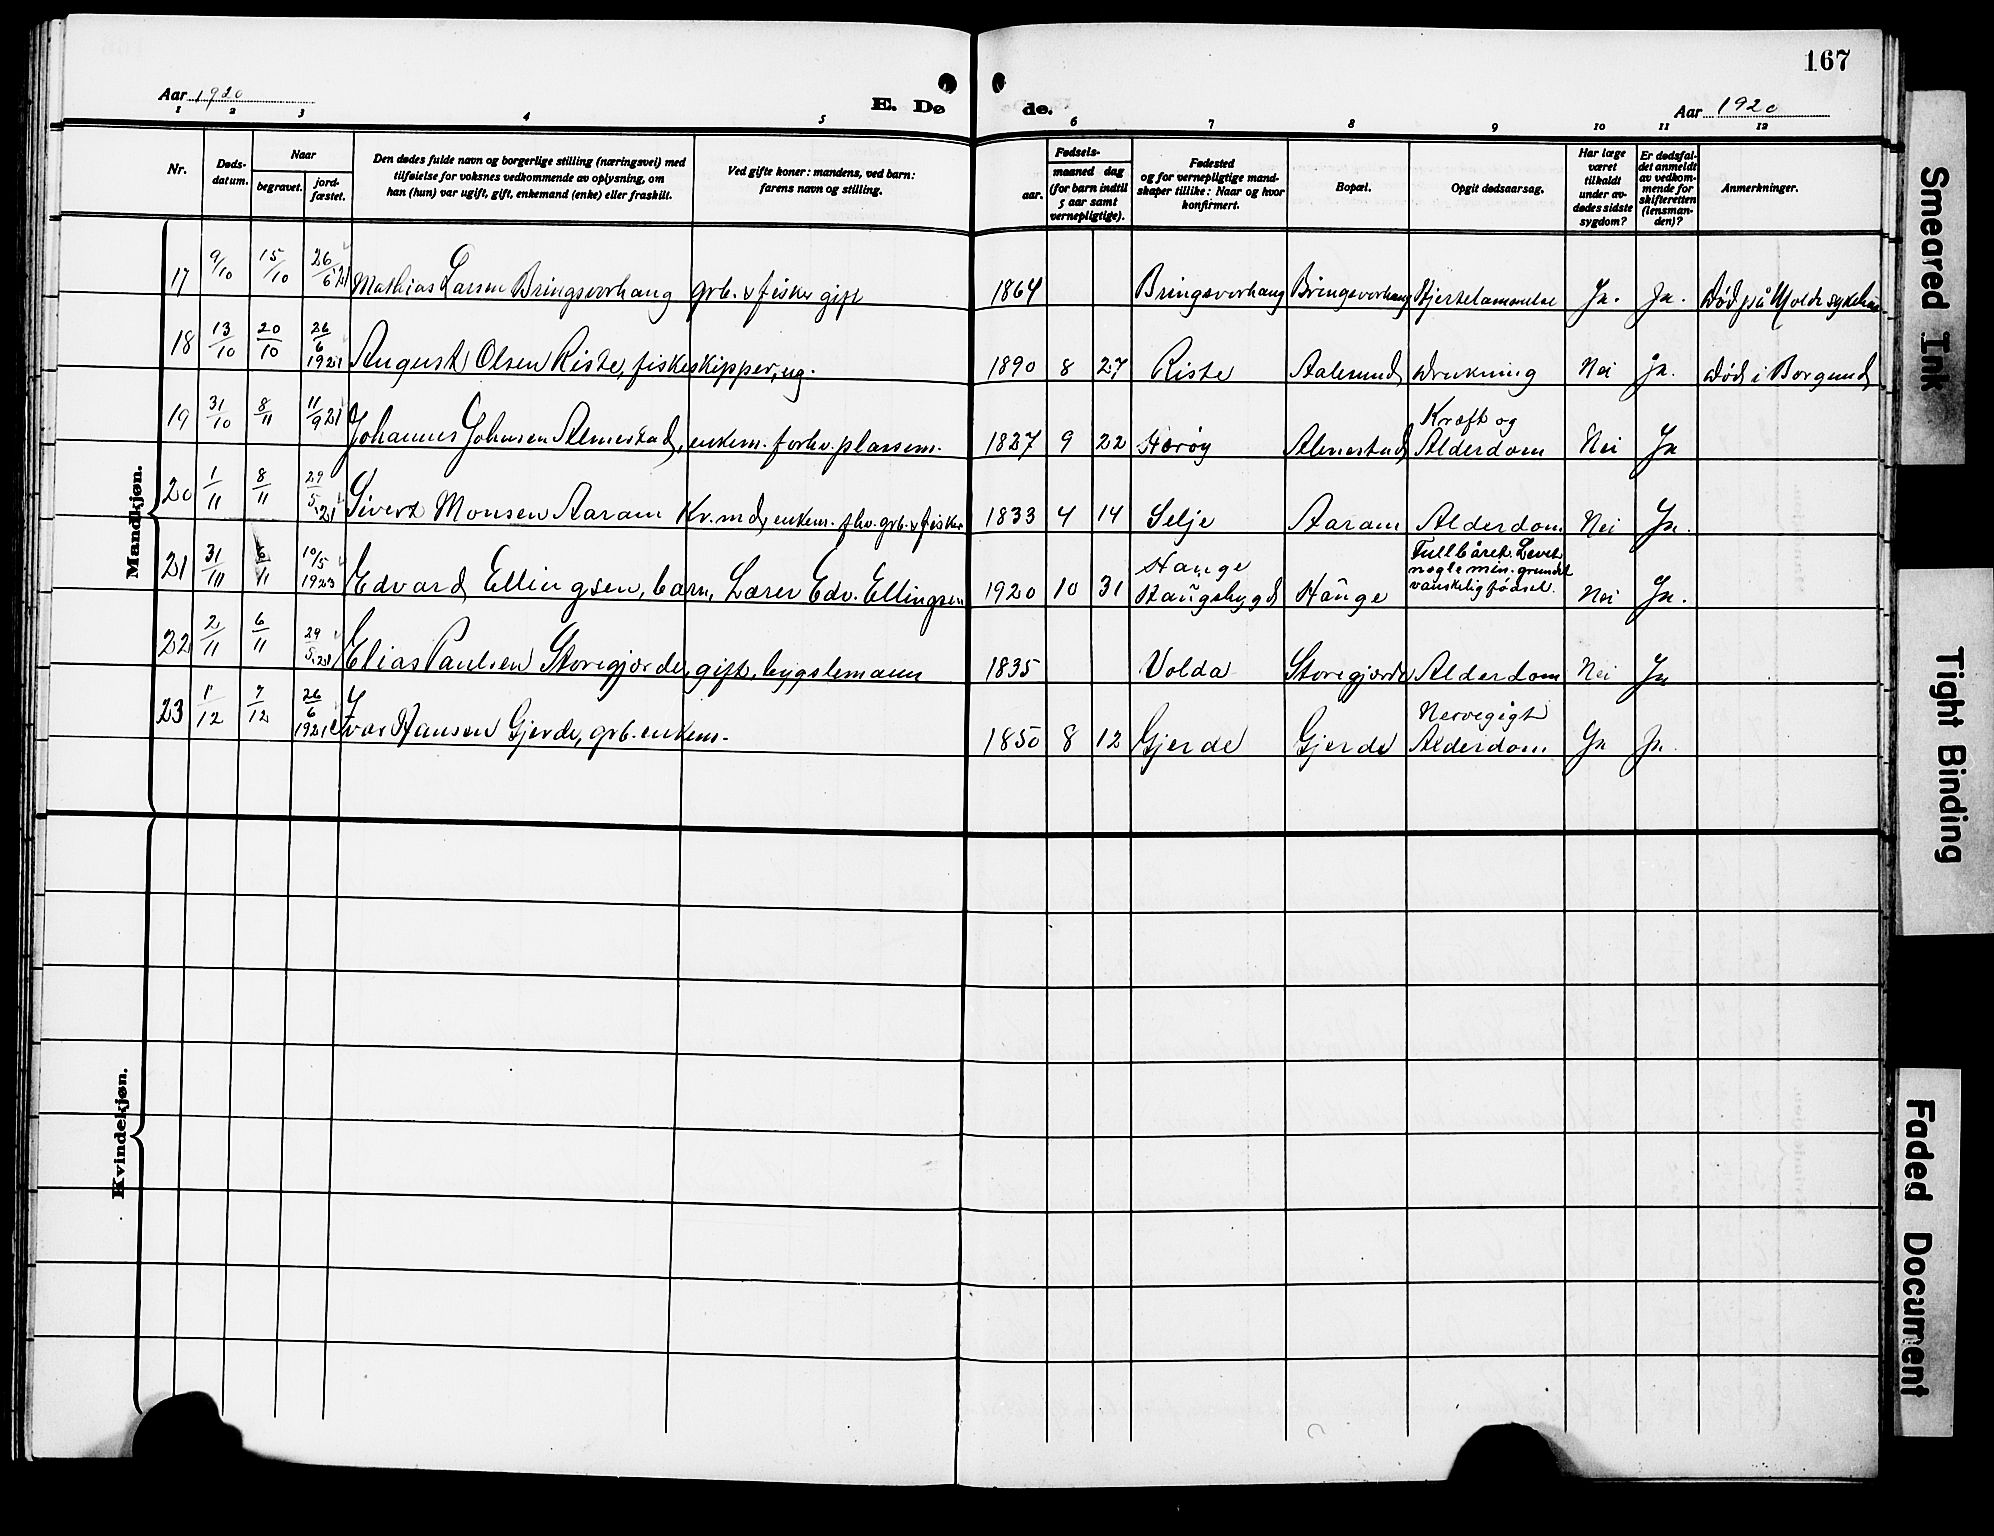 167
Aar 1920
E. Døde.
Aar 1920
1 2 3 4 5 6 7 8 9 10 11 12
Nr.
Døds-
datum.
Naar
begravet.
jord-
fæstet.
Den dødes fulde navn og borgerlige stilling (næringsvei) med
tilføielse for voksnes vedkommende av oplysning, om
han (hun) var ugift, gift, enkemand (enke) eller fraskilt.
Ved gifte koner: mandens, ved barn:
farens navn og stilling.
Fødsels-
aar.
maaned dag
(for barn indtil
5 aar samt
vernepligtige).
Fødested
og for vernepligtige mand-
skaper tillike: Naar og hvor
konfirmert.
Bopæl.
Opgit dødsaarsag.
Har læge
været
tilkaldt
under av-
dødes sidste
sygdom?
Er dødsfal-
det anmeldt
av vedkom-
mende for
skifteretten
(lensman-
den)?
Anmerkninger.
Mandkjøn.
17 9/10 15/10 26/6 21 Mathias Larsen Bringsvorhaug grb. & fisker gift 1864 Bringsvorhaug Bringsvorhaug Hjertelammelse Ja. Ja. Død på Molde sykehus
18 13/10 20/10 26/6 1921 August Olsen Riste, fiskeskipper, ug. 1890 8 27 Riste Aalesund Drukning Nei Ja. Død i Borgund
19 31/10 8/11 11/9 21 Johannes Johnsen Almestad, enkem. forhv. plassm. 1827 9 22 Herøy Almestad Kræft og
Alderdom Nei Ja
20 1/11 8/11 29/5 21 Sivert Monsen Aaram Kv.md, enkem. fhv. grb. & fisker 1833 4 14 Selje Aaram Alderdom Nei Ja.
21 31/10 /11 10/5 1923 Edvard Ellingsen, barn, Lærer Edv. Ellingsen 1920 10 31 Hauge
Haugsbygd Hauge Fullbåret. Levet
nogle min. grundet
vanskelig fødsel. Nei Ja.
22 2/11 6/11 29/5 21 Elias Paulsen Storegjerde, gift, bygslemann 1835 Volda Storegjerde Alderdom Nei Ja
23 1/12 7/12 26/6 1921 Ivar Hansen Gjerde, grb. enkem. 1850 8 12 Gjerde Gjerde Nervegigt
Alderdom Ja Ja.
Kvindekjøn.
Smeared Ink
Tight Binding
Faded Document